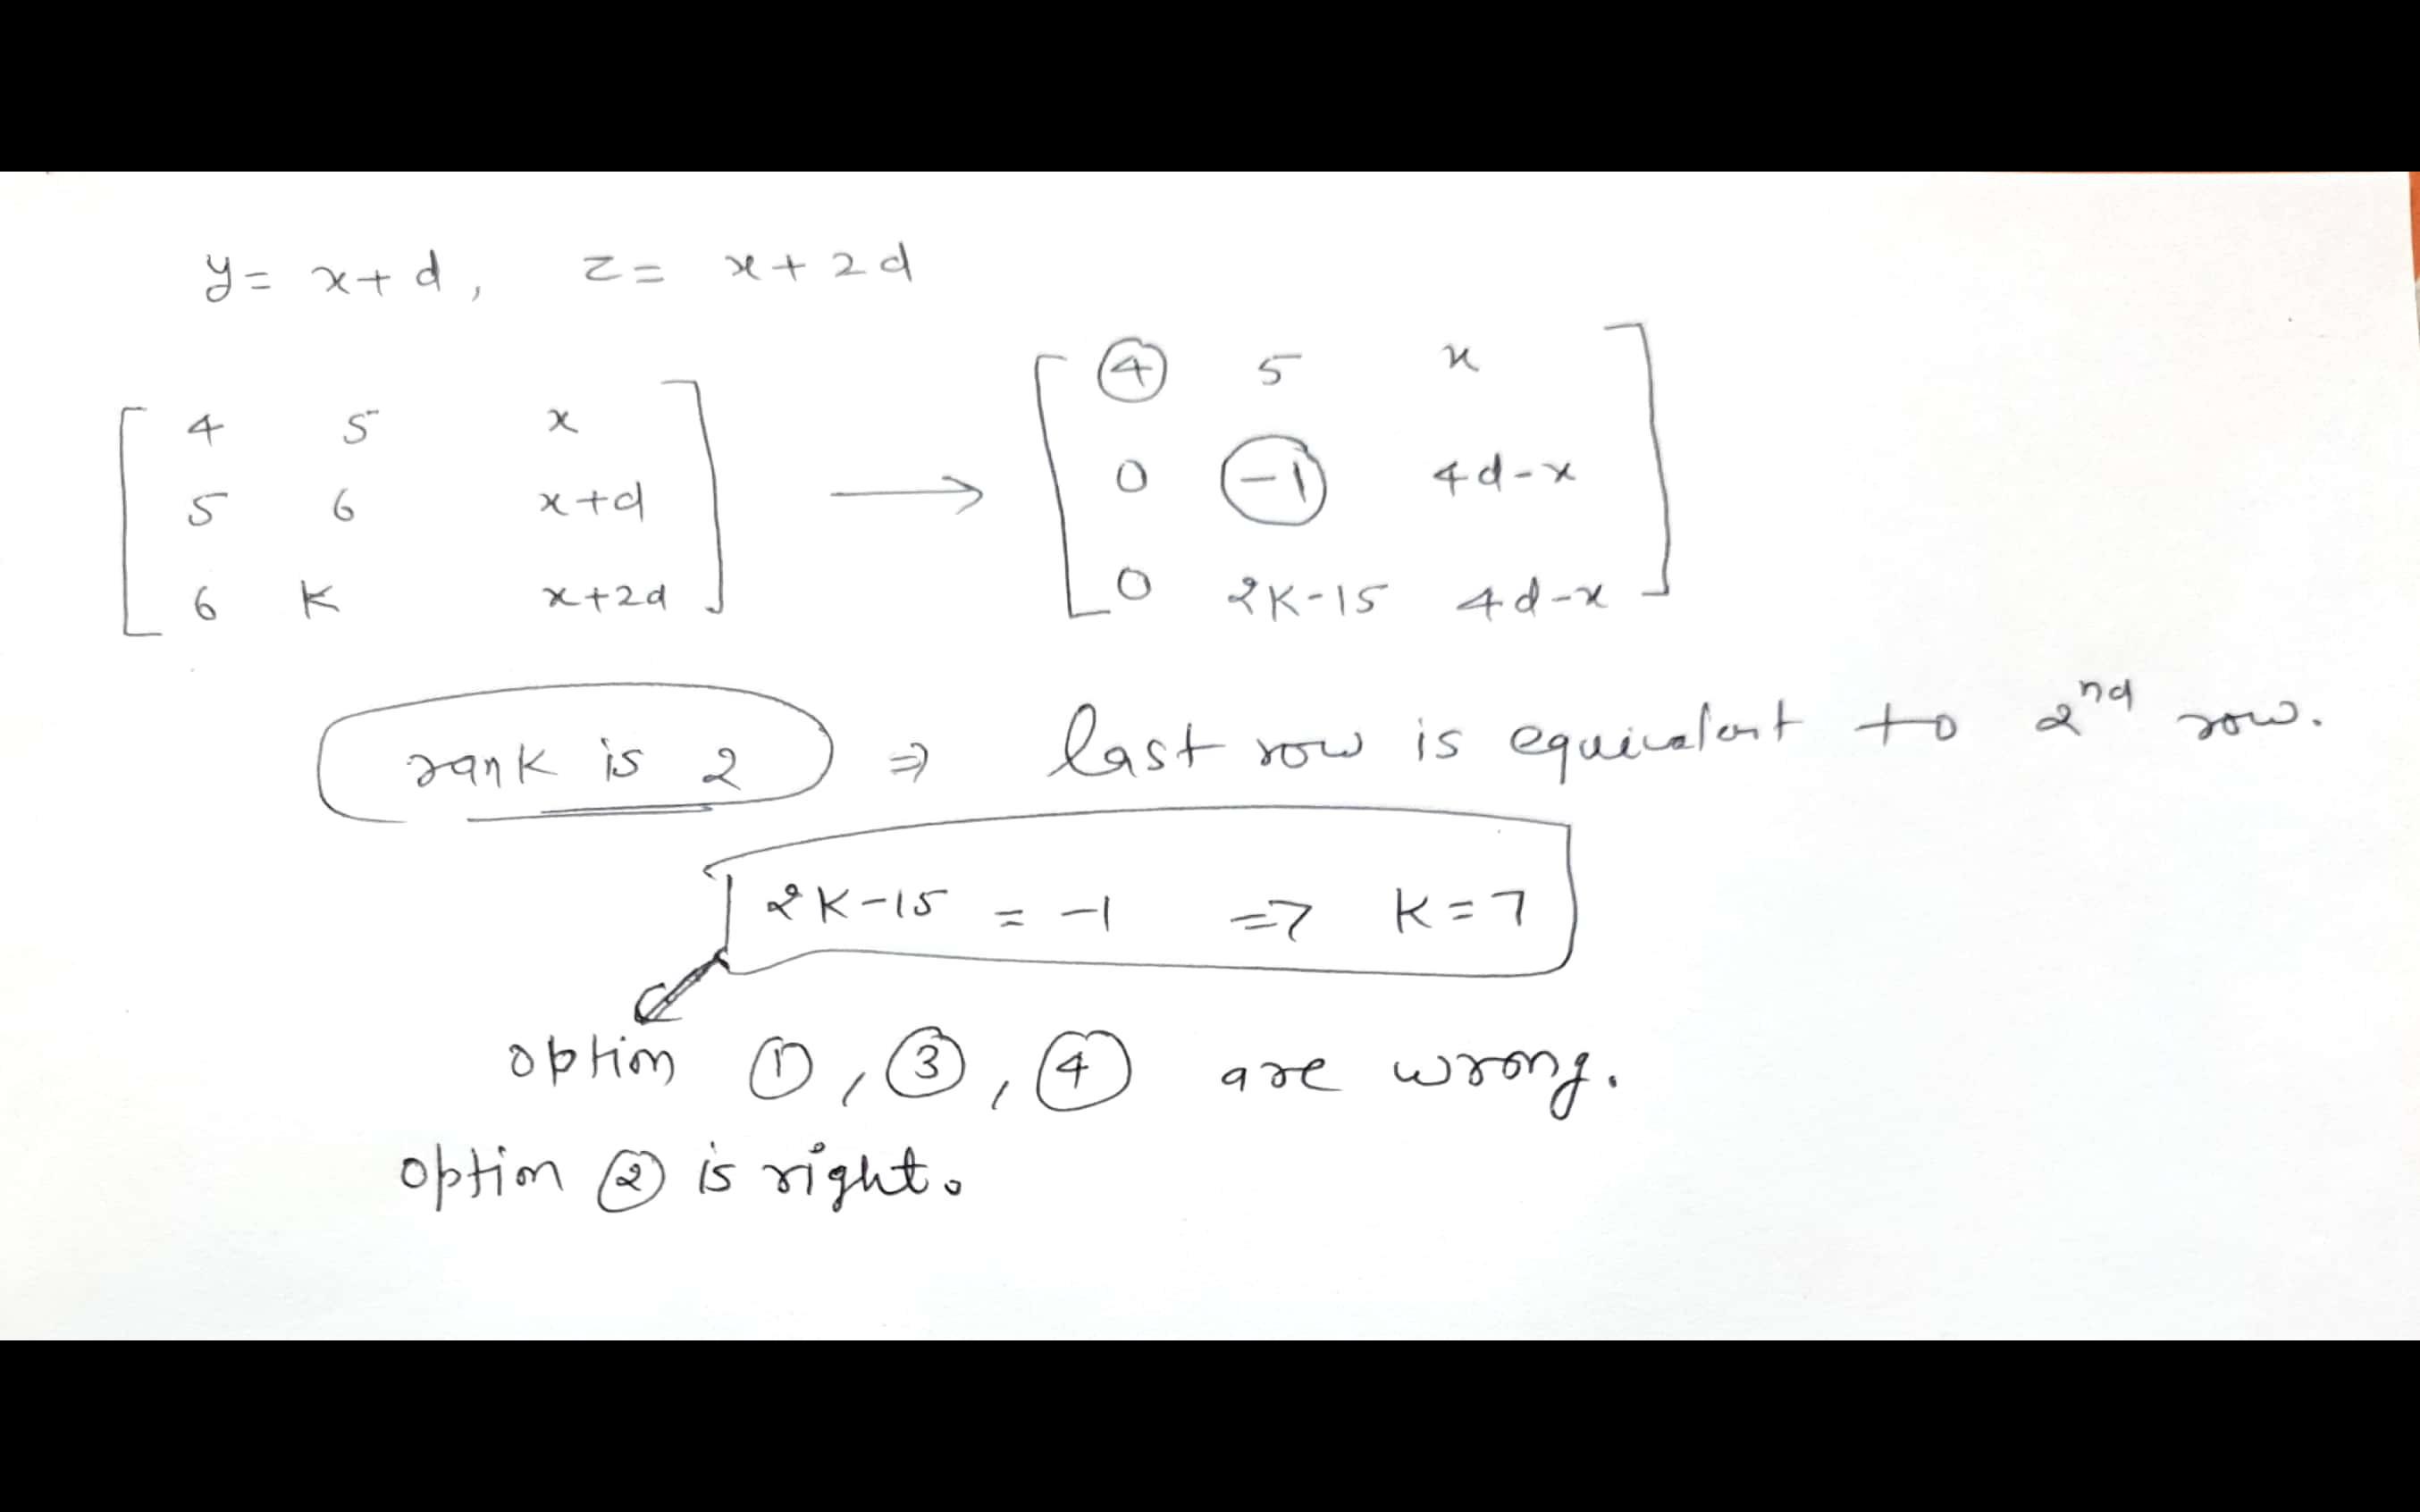 y = x + d, z = x + 2d
4 5 x
5 6 x+d
6 K x+2d
→
④ 5 x
0 (-1) 4d-x
0 2K-15 4d-x
rank is 2 ⇒ last row is equivalent to 2nd row.
2K-15 = -1 => K=7
option ①, ③, ④ are wrong.
option ② is right.